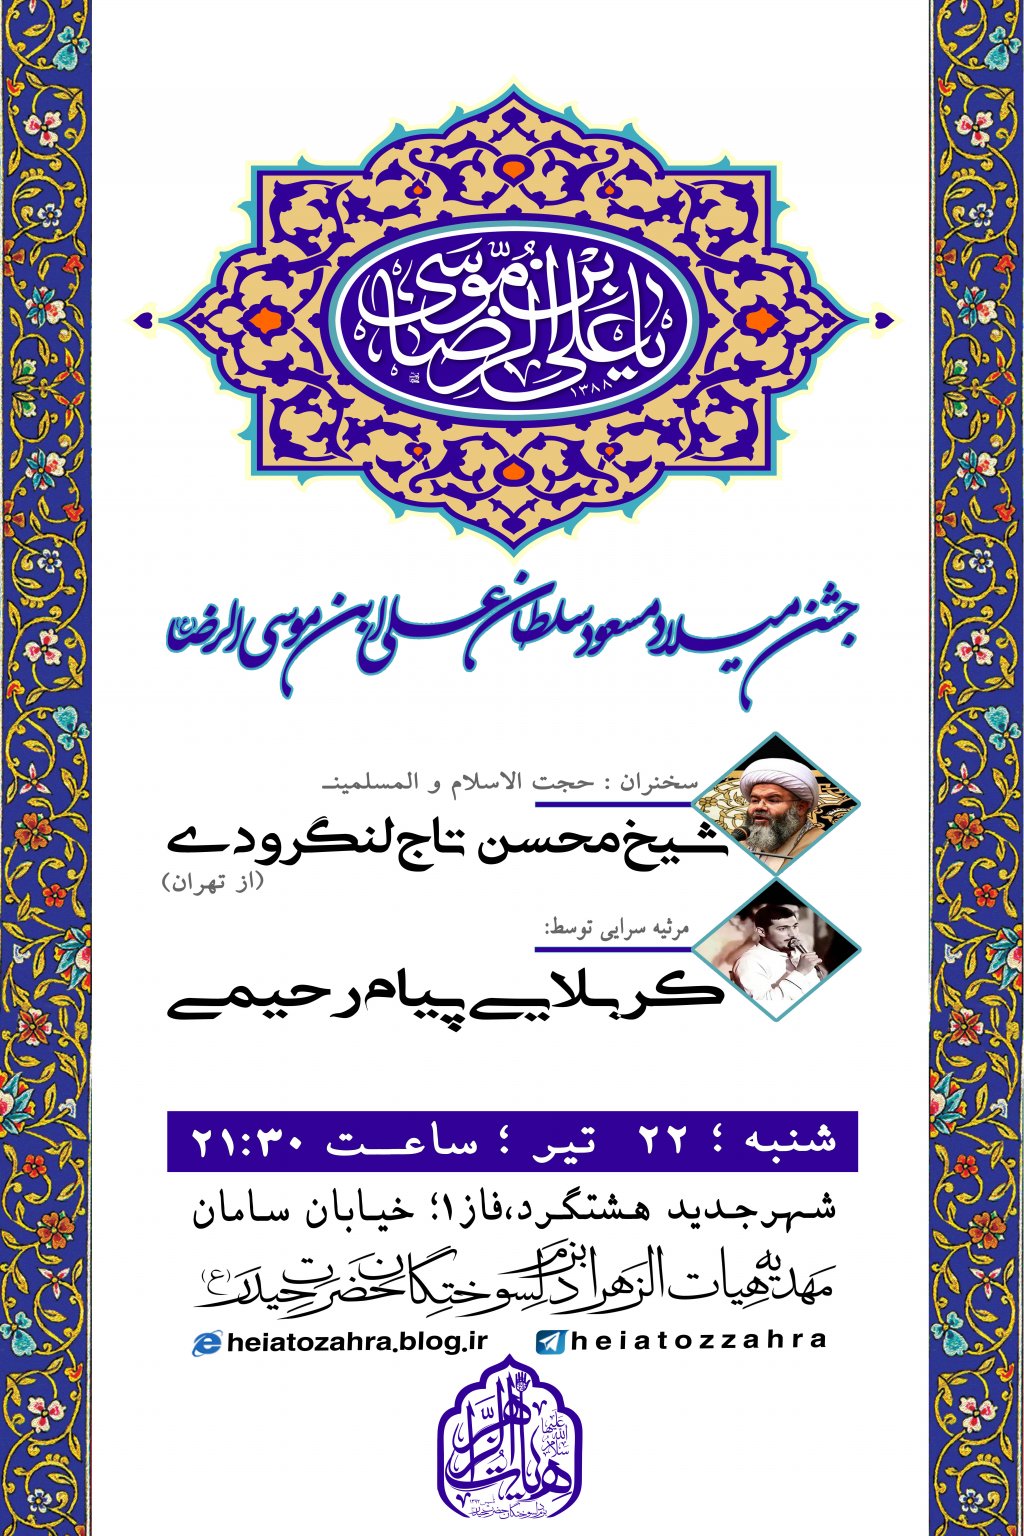 یا علی بن موسی الرضا
۱۳۸۸
جشن میلاد مسعود سلطان علی ابن موسی الرضا (ع)
سخنران : حجت الاسلام و المسلمین
شیخ محسن تاج لنگرودی
(از تهران)
مرثیه سرایی توسط:
کربلایی پیام رحیمی
شنبه ؛ ۲۲ تیر ؛ ساعت ۲۱:۳۰
شهرجدید هشتگرد،فاز۱؛ خیابان سامان
مهدیه هیات الزهرا بزم دلسوختگان حضرت حیدر (ع)
heiatozahra.blog.ir heiatozzahra
هیات الزهرا
سلام الله علیها
بزم دلسوختگان حضرت حیدر